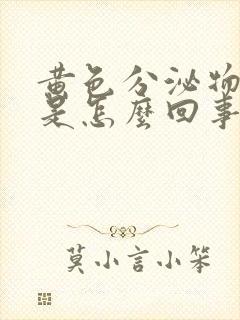 黄色分泌物
是怎麼回事
莫小言小笨